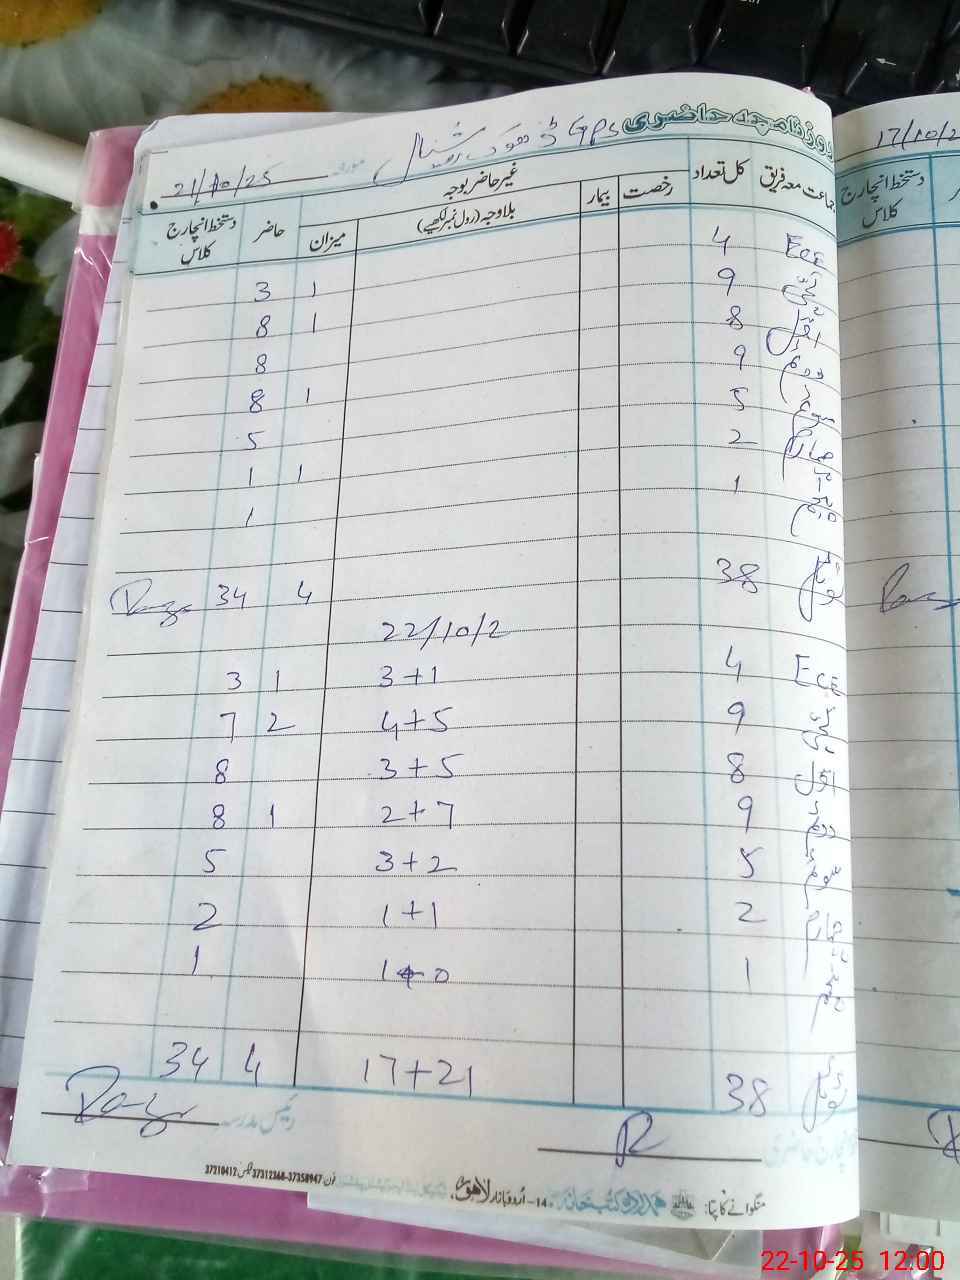 روزنامچہ حاضری GPS ڈھوک
21/10/25 مورخہ
جماعت معہ فریق کل تعداد رخصت بیمار غیر حاضر بوجہ حاضر دستخط انچارج کلاس
بلاوجہ (رول نمبر لکھیے) میزان
ECE 4 1 3
9 1 8
اول 8 8
دوم 9 1 8
سوم 5 5
چہارم 2 1 1
پنجم 1 1
38 4 34
22/10/2
ECE 4 3+1 1 3
9 4+5 2 7
اول 8 3+5 8
دوم 9 2+7 1 8
سوم 5 3+2 5
چہارم 2 1+1 2
پنجم 1 1+0 1
38 17+21 4 34
رئیس مدرسہ
انچارج حاضری
منگوانے کا پتا: ہمدرد کتب خانہ 14- اردو بازار لاہور۔ فون 37358947-37312368 فیکس: 37210412
17/10/2
دستخط انچارج کلاس
22-10-25 12:00